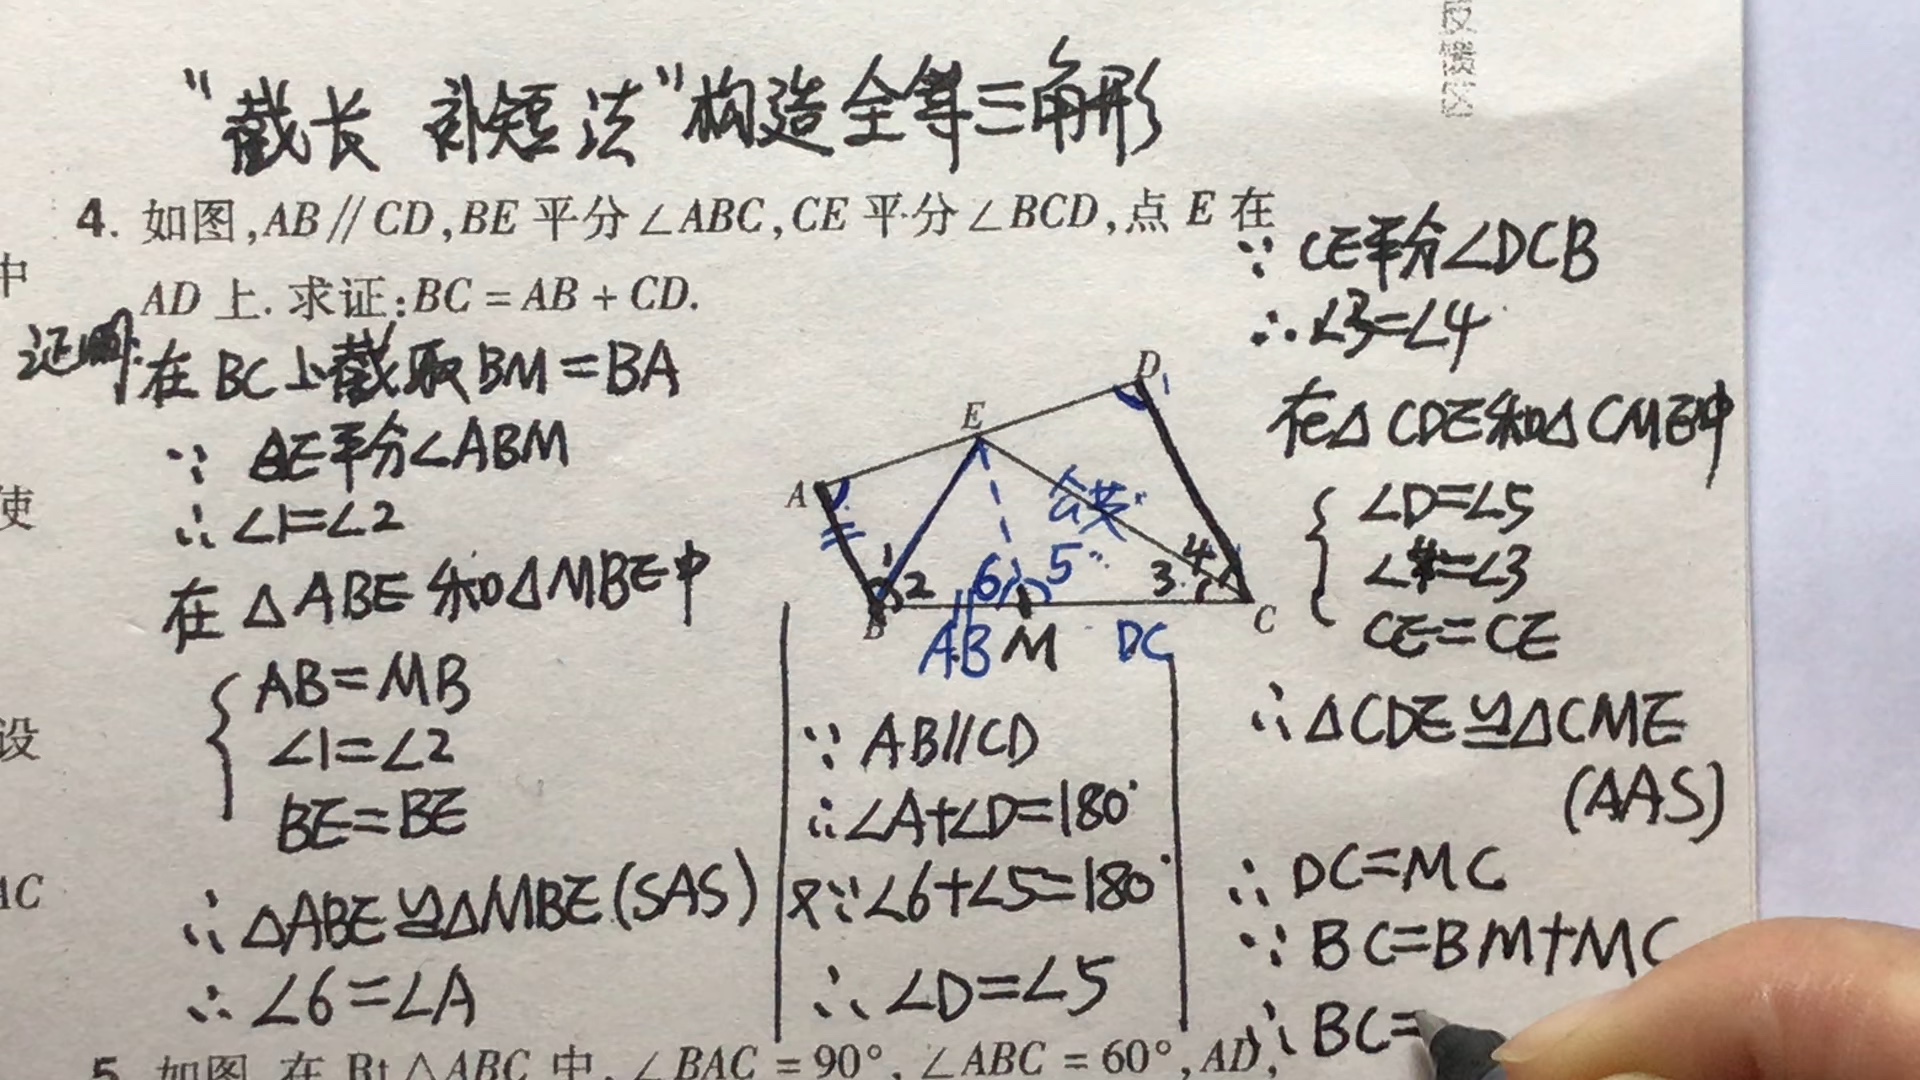 反馈区
"截长 补短法"构造全等三角形
4. 如图,AB∥CD,BE 平分∠ABC,CE 平分∠BCD,点 E 在
AD 上. 求证:BC = AB + CD.
中
使
设
AC
证明:
在 BC上截取 BM=BA
∵ BE平分∠ABM
∴ ∠1=∠2
在 △ABE 和△MBE中
{ AB=MB
∠1=∠2
BE=BE
∴ △ABE≌△MBE(SAS)
∴ ∠6=∠A
D
E
A
公共
1 2 6 5 3 4
B M C
AB DC
∵ AB//CD
∴∠A+∠D=180°
又∵∠6+∠5=180°
∴ ∠D=∠5
∵ CE平分∠DCB
∴ ∠3=∠4
在△CDE和△CME中
{ ∠D=∠5
∠4=∠3
CE=CE
∴△CDE≌△CME
(AAS)
∴ DC=MC
∵ BC=BM+MC
∴ BC=
5. 如图,在 Rt△ABC 中,∠BAC = 90°,∠ABC = 60°,AD,